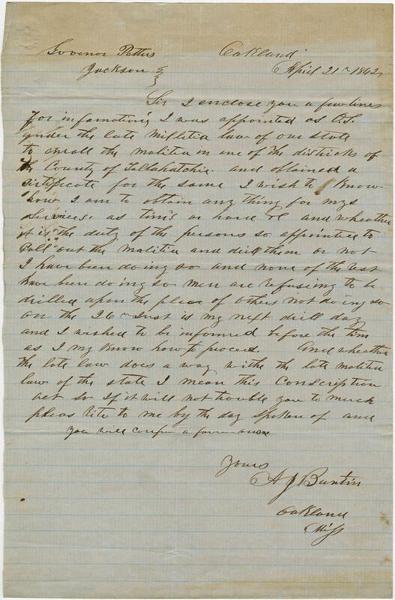 Govenor Pettus Oakland
Jackson April 21st 1862
Sir I enclose you a few lines
for infamation I was appointed as
under the late Militia law of our state
to enroll the malitia in one of the districks of
the County of Tallahatchie and obtained a
certificate for the same I wish to know
how I am to obtain any thing for my
Services as tim is hard & and wheather
it is the duty of the persons so appointed to
Call out the malitia and drill them or not
I have been doing so and none of the rest
have been doing so men are refusing to be
drilled upon the pleas of others not doing so
on the 26 Inst is my next drill day
and I wished to be informed before the time
as I my know how to proceed And wheather
the late law does a way withe the late malitia
law of the state I mean this Conscription
act so If it will not trouble you to much
pleas rite to me by the day spoken of and
you will confer a favor
Yours
A J Buntin
Oakland
Miss